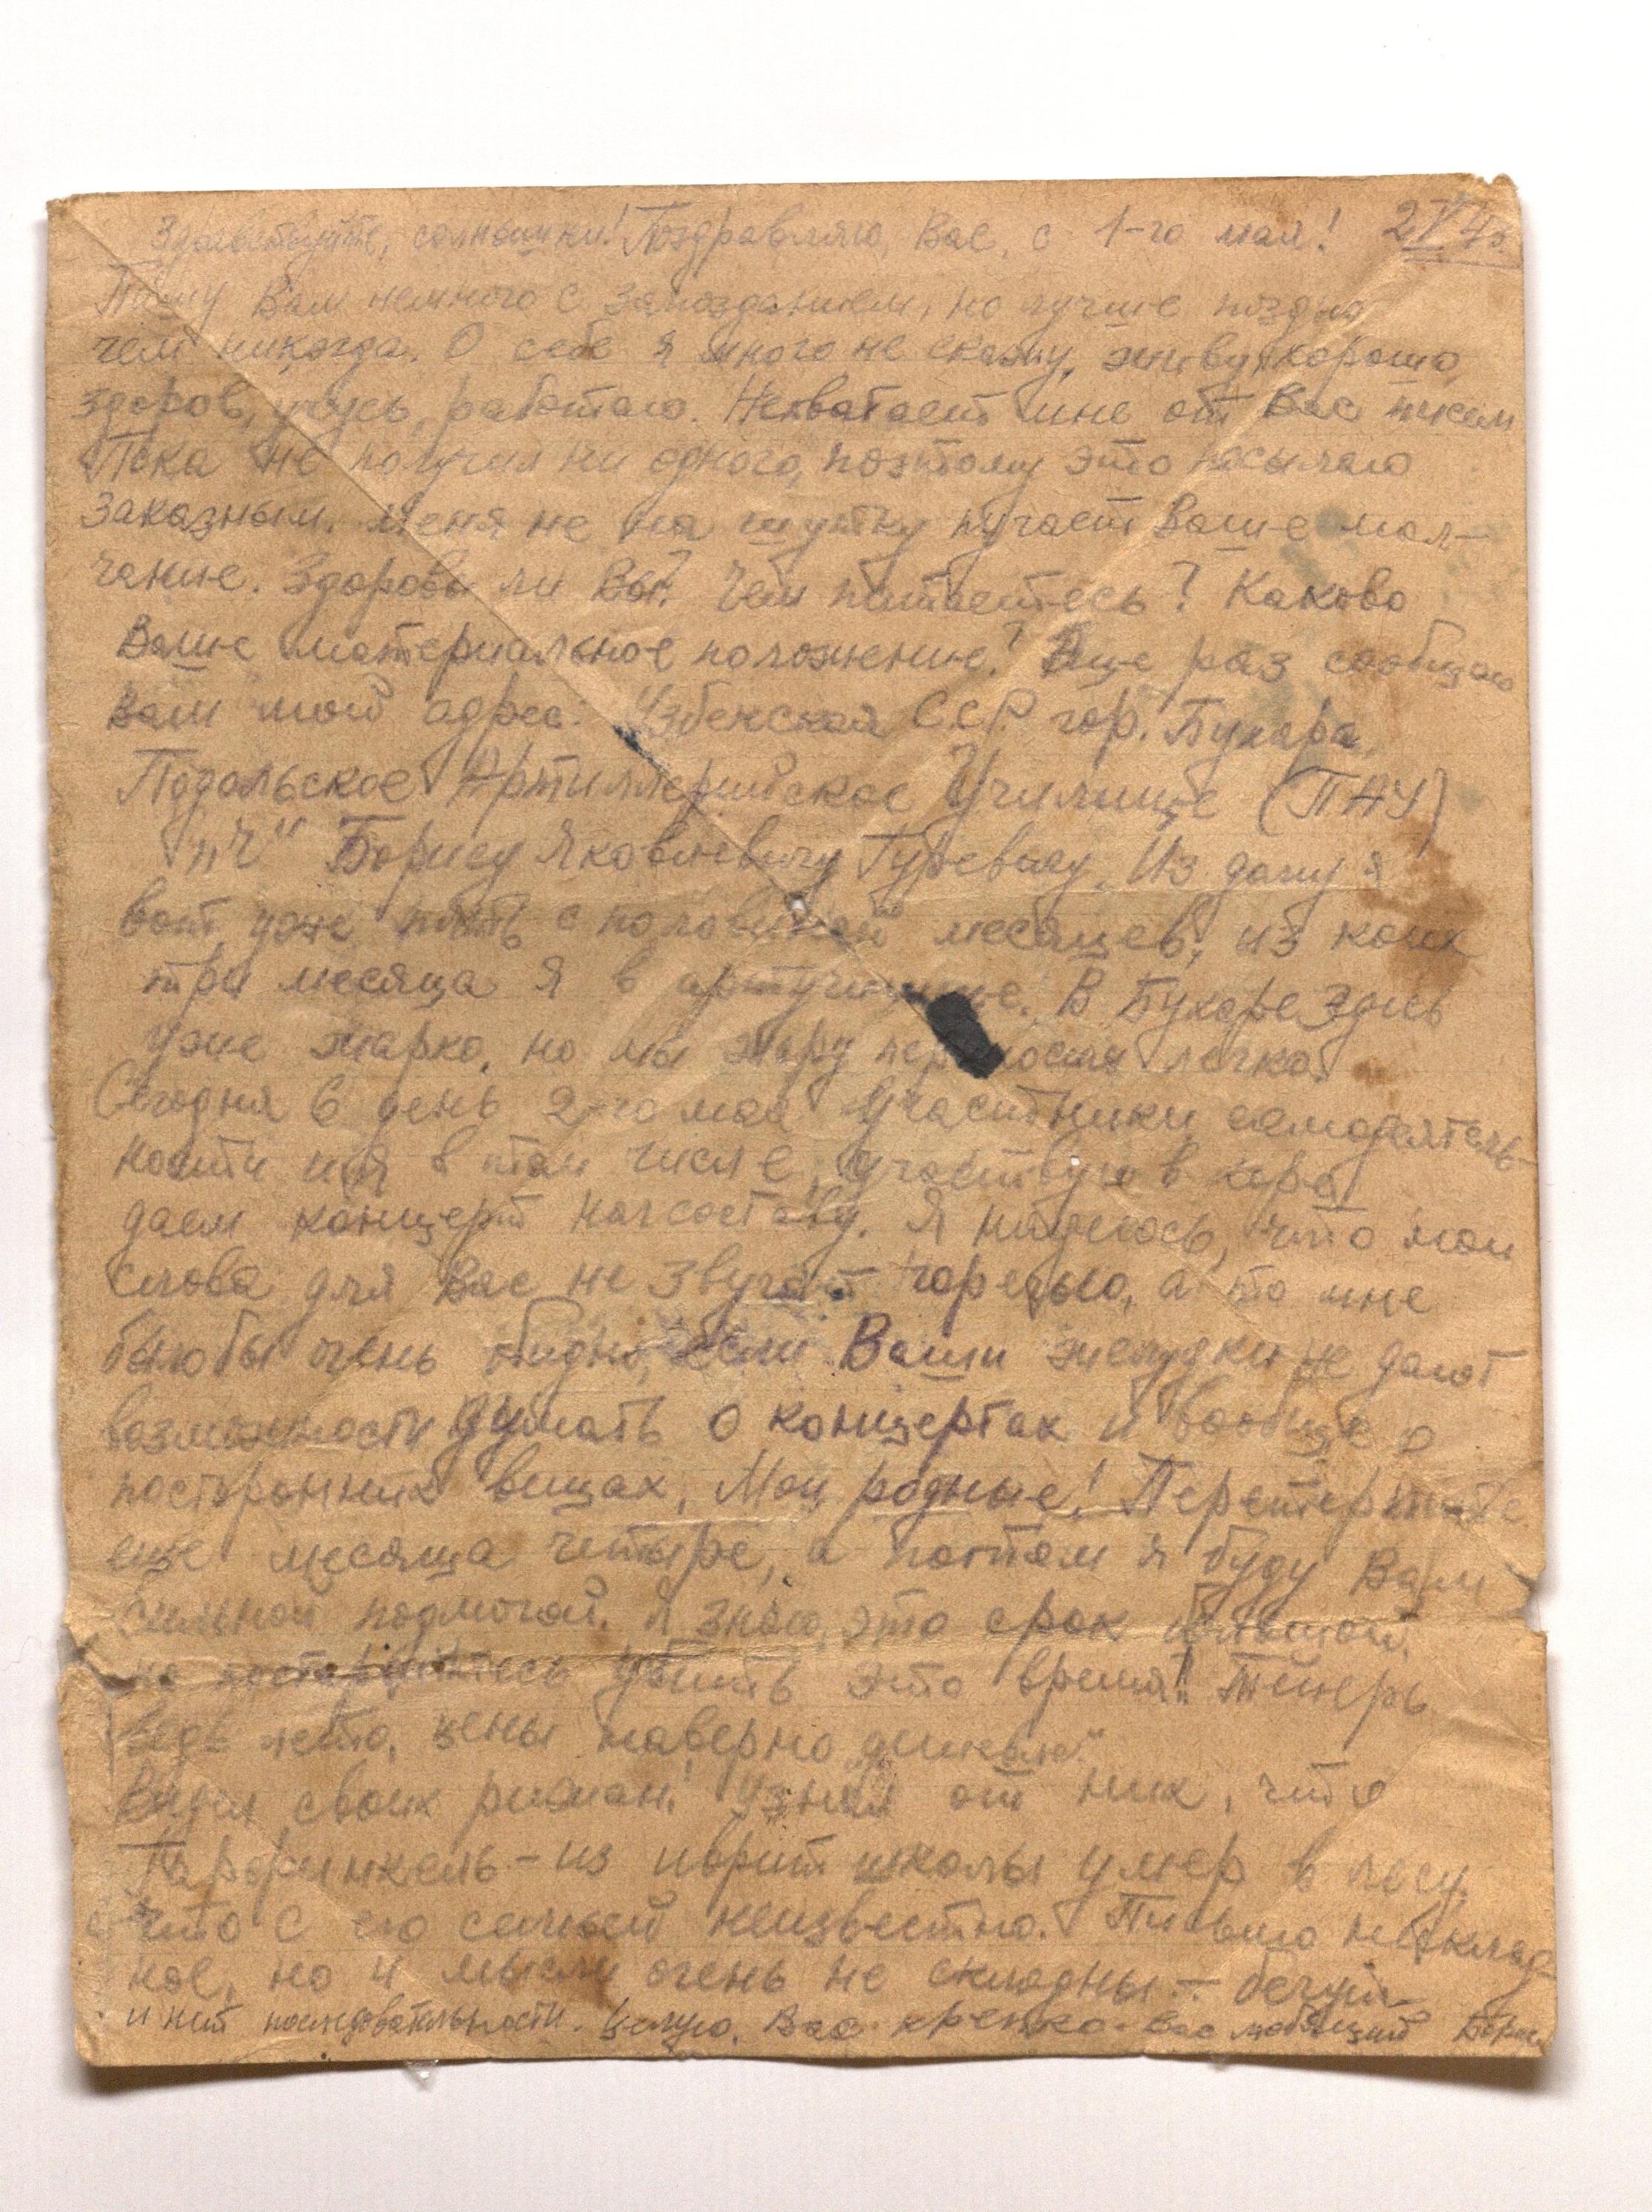 Здравствуйте, солнышки! Поздравляю, Вас, с 1-го мая! 2/V 4
Пишу Вам немного с запозданием, но лучше поздно
чем никогда. О себе я много не скажу, живу хорошо,
здоров, учусь, работаю. Нехватает мне от Вас писем
Пока не получил ни одного, поэтому это посылаю
заказным. Меня не на шутку пугает Ваше мол-
чание. Здоровы ли Вы? Чем питаетесь? Каково
Ваше материальное положение? Еще раз сообщаю
Вам мой адрес: Узбекская ССР гор. Бухара,
Подольское Артиллерийское Училище (ПАУ)
"Ч" Борису Яковлевичу Гуревичу. Из дому я
вот уже пять с половиной месяцев, из коих
три месяца я в артучилище. В Бухаре здесь
уже жарко, но мы жару переносим легко.
Сегодня в день 2-го мая участники самодеятель-
ности и я в том числе, участвую в хоре
даем концерт начсоставу. Я надеюсь, что мои
слова для Вас не звучат горечью, а то мне
было бы очень обидно, если Ваши желудки не дают
возможности думать о концертах и вообще о
посторонних вещах. Мои родные! Перетерпите
еще месяца четыре, а потом я буду Вам
сильной подмогой. Я знаю, это срок большой,
но постарайтесь убить это время! Теперь
ведь лето, цены наверно
Видел своих Узнал от них, что
Гарфинкель - из школы умер в лесу.
что с его семьей неизвестно. Письмо несклад-
ное, но и мысли очень не складны -
и нет последовательности. Целую Вас крепко. Вас любящий Борис